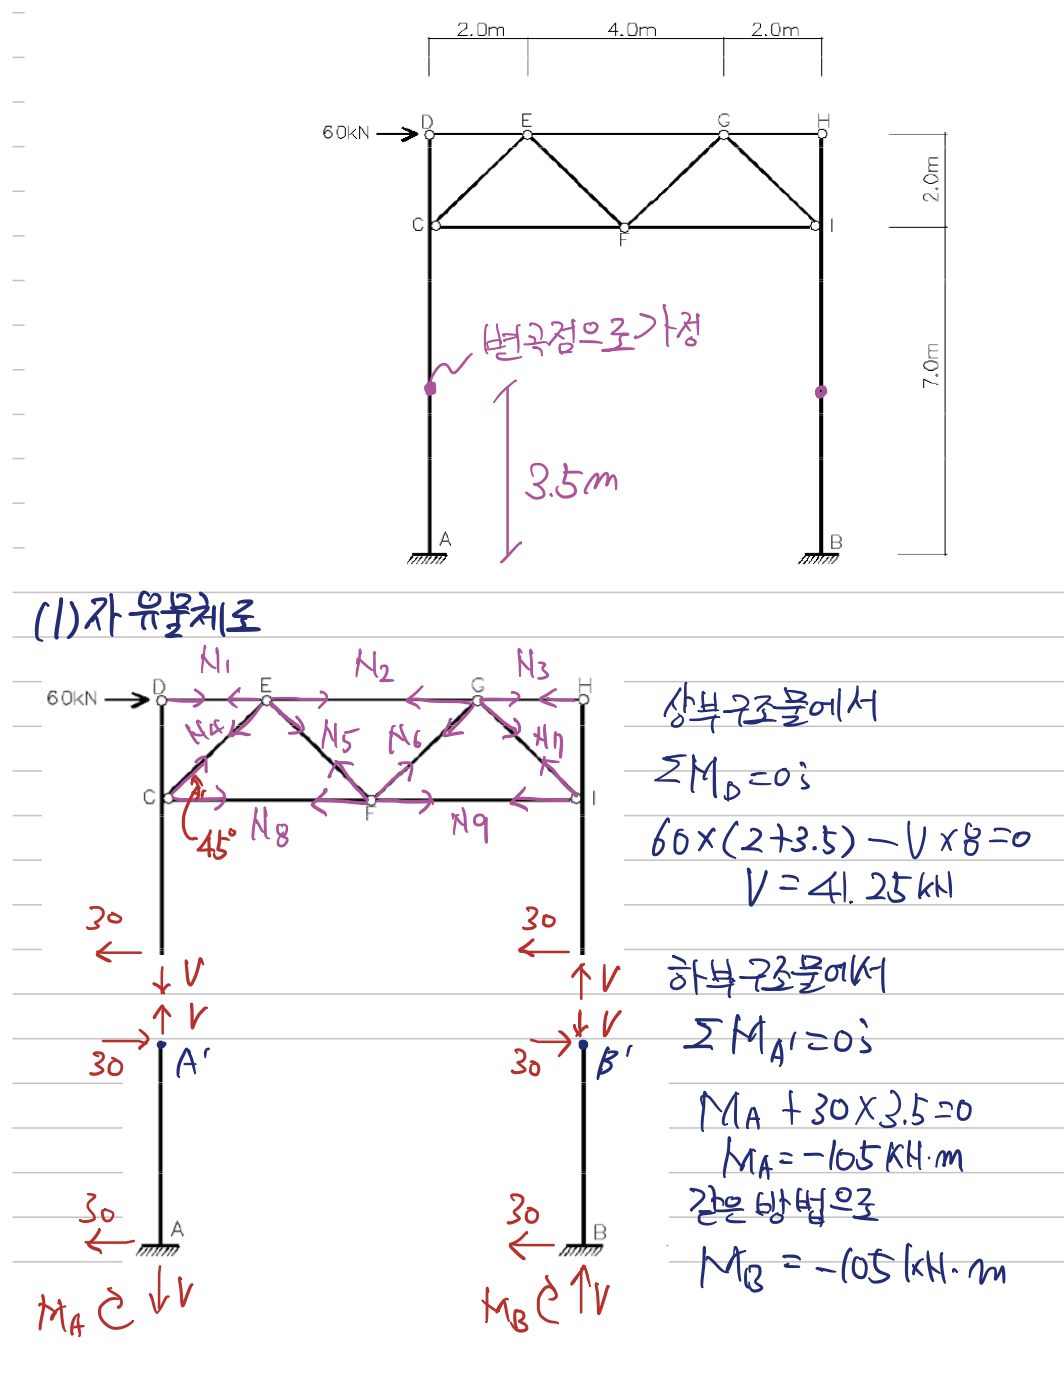 2.0m 4.0m 2.0m
60kN D E G H
2.0m
C F I
변곡점으로 가정
7.0m
3.5m
A B
(1) 자유물체로
N1 N2 N3
60kN D E G H
N4 N5 N6 N7
C F I
45°
N8 N9
30 30
V V
V V
30 A' 30 B'
30 A 30 B
MA V MB V
상부구조물에서
ΣMD=0;
60×(2+3.5)-V×8=0
V=41.25kN
하부구조물에서
ΣMA'=0;
MA+30×3.5=0
MA=-105KN·m
같은 방법으로
MB=-105kN·m